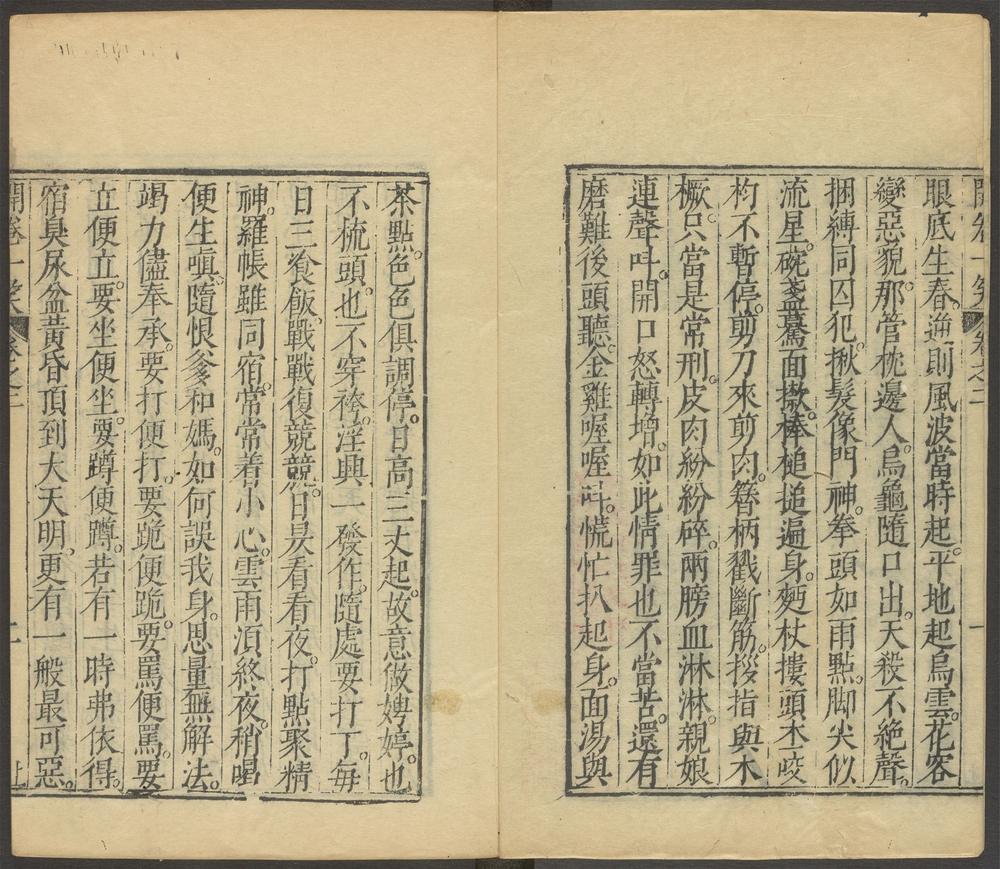 開卷一笑 卷之二 一
眼底生春。逾則風波當時起。平地起烏雲。花容
變惡貌。那管枕邊人。烏龜隨口出。天殺不絕聲。
捆縛同囚犯。楸髮像門神。拳頭如雨點。脚尖似
流星。碗盞驀面撒。棒槌搥遍身。麪杖摟頭木。咬
杓不暫停。剪刀來剪肉。簪柄戳斷筋。拶指與木
橛。只當是常刑。皮肉紛紛碎。兩膀血淋淋。親娘
連聲呌。開口怒轉增。如此情罪也不當苦。還有
磨難後頭聽。金雞喔喔呌。慌忙扒起身。面湯與
茶點。色色俱調停。日高三丈起。故意做娉婷。也
不梳頭。也不穿褲。淫興一發作。隨處要打丁。每
日三飡飯。戰戰復競競。日㫷看看夜。打點聚精
神。羅帳雖同宿。常常着小心。雲雨湏終夜。稍喝
便生嗔。隨恨爹和媽。如何誤我身。思量無解法。
竭力儘奉承。要打便打。要跪便跪。要罵便罵。要
立便立。要坐便坐。要蹲便蹲。若有一時弗依得。
宿臭尿盆黃昏頂到大天明。更有一般最可惡。
開卷一笑 卷之二 二